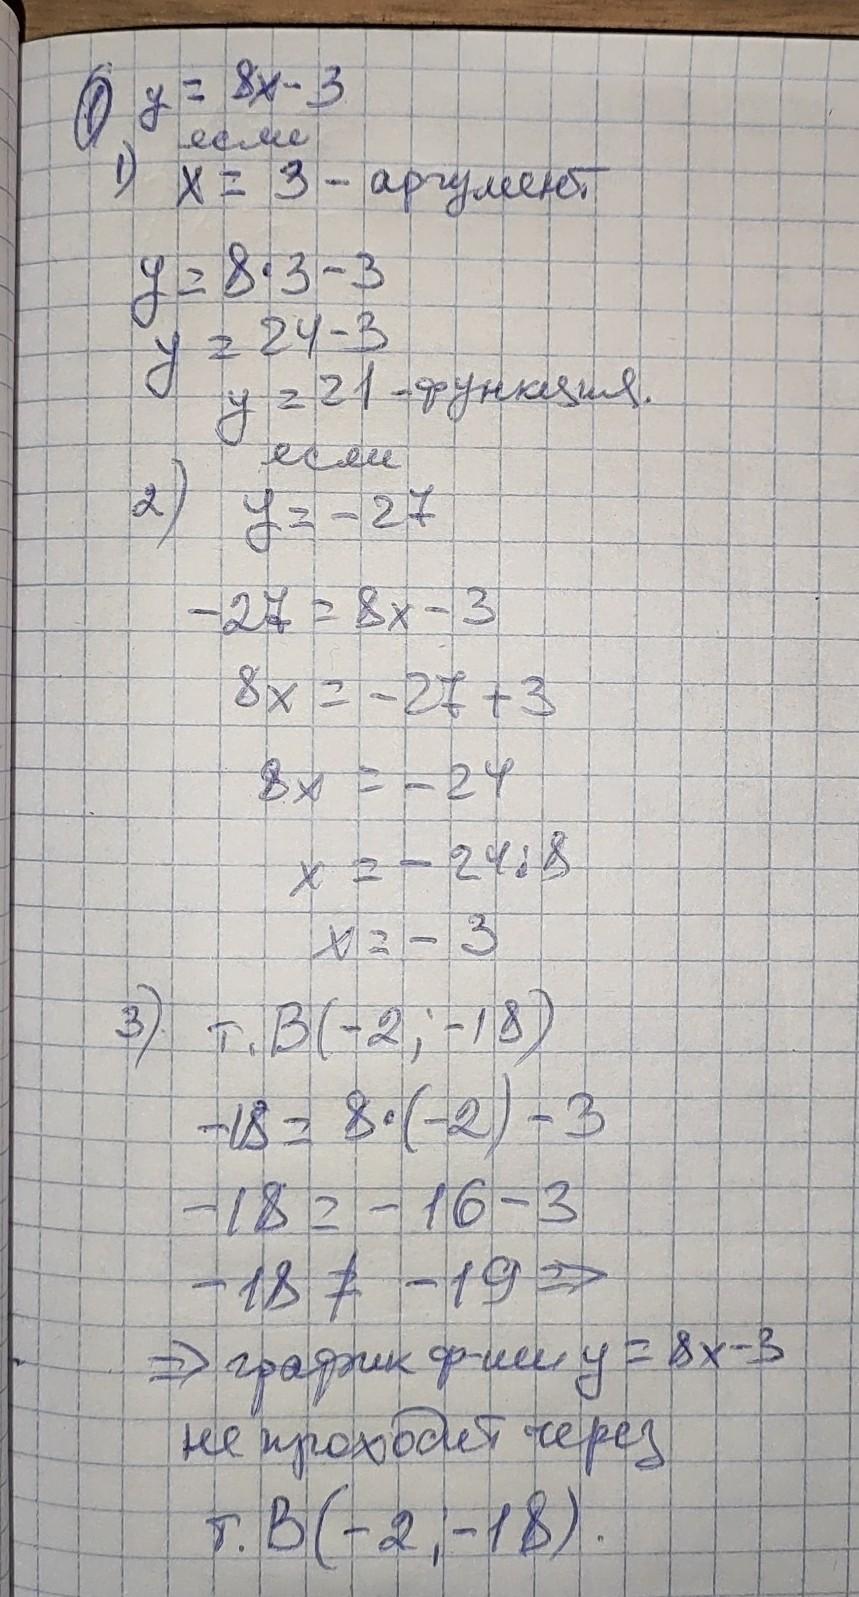 ① y = 8x - 3
если
1) x = 3 - аргумент.
y = 8·3 - 3
y = 24 - 3
y = 21 - функция.
если
2) y = -27
-27 = 8x - 3
8x = -27 + 3
8x = -24
x = -24:8
x = -3
3) т. B(-2; -18)
-18 = 8·(-2) - 3
-18 = -16 - 3
-18 ≠ -19 ⇒
⇒ график ф-ии y = 8x - 3
не проходит через
т. B(-2; -18).